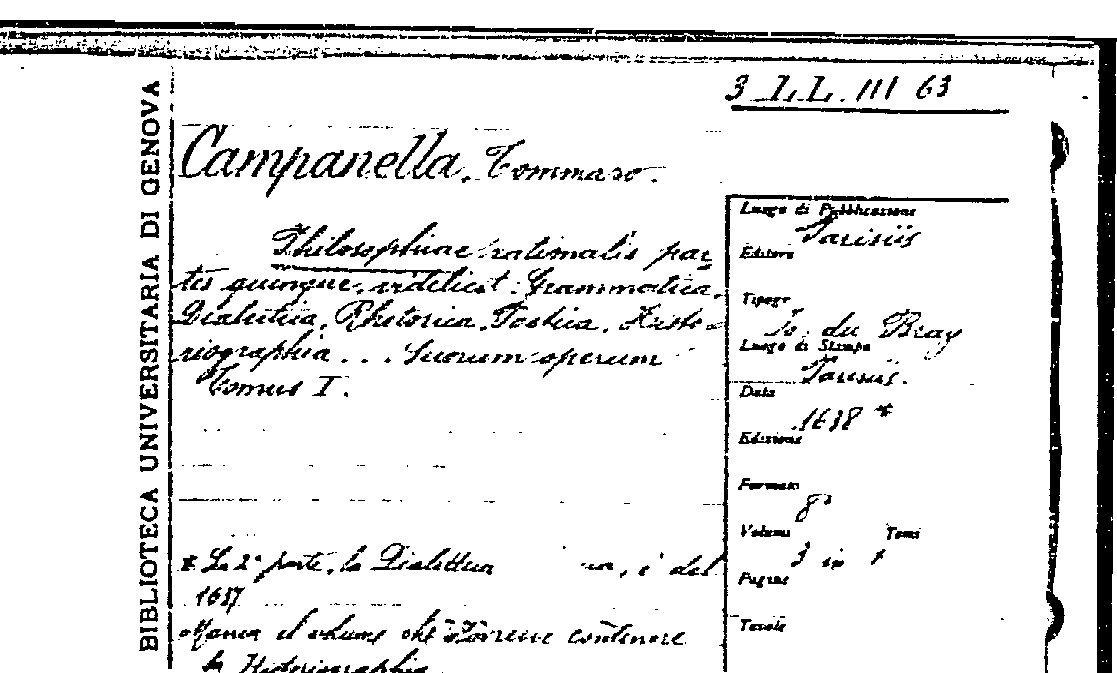 3 LL III 63
BIBLIOTECA UNIVERSITARIA DI GENOVA
Campanella, Tommaso.
Philosophiae rationalis par
tes quinque, videlicet: Grammatica,
Dialectica, Rhetorica, Poetica, Histo-
riographia... Suorum operum
Tomus I.
* La 2ª parte, la Dialettica è del
1637
Manca il volume che contenere
la Historiographia
Luogo di Pubblicazione
Parisiis
Editore
Tipogr
Io. du Bray
Luogo di Stampa
Parisiis.
Data
1638 *
Edizione
Formato
8°
Volumi Tomi
3 in 1
Pagine
Tavole